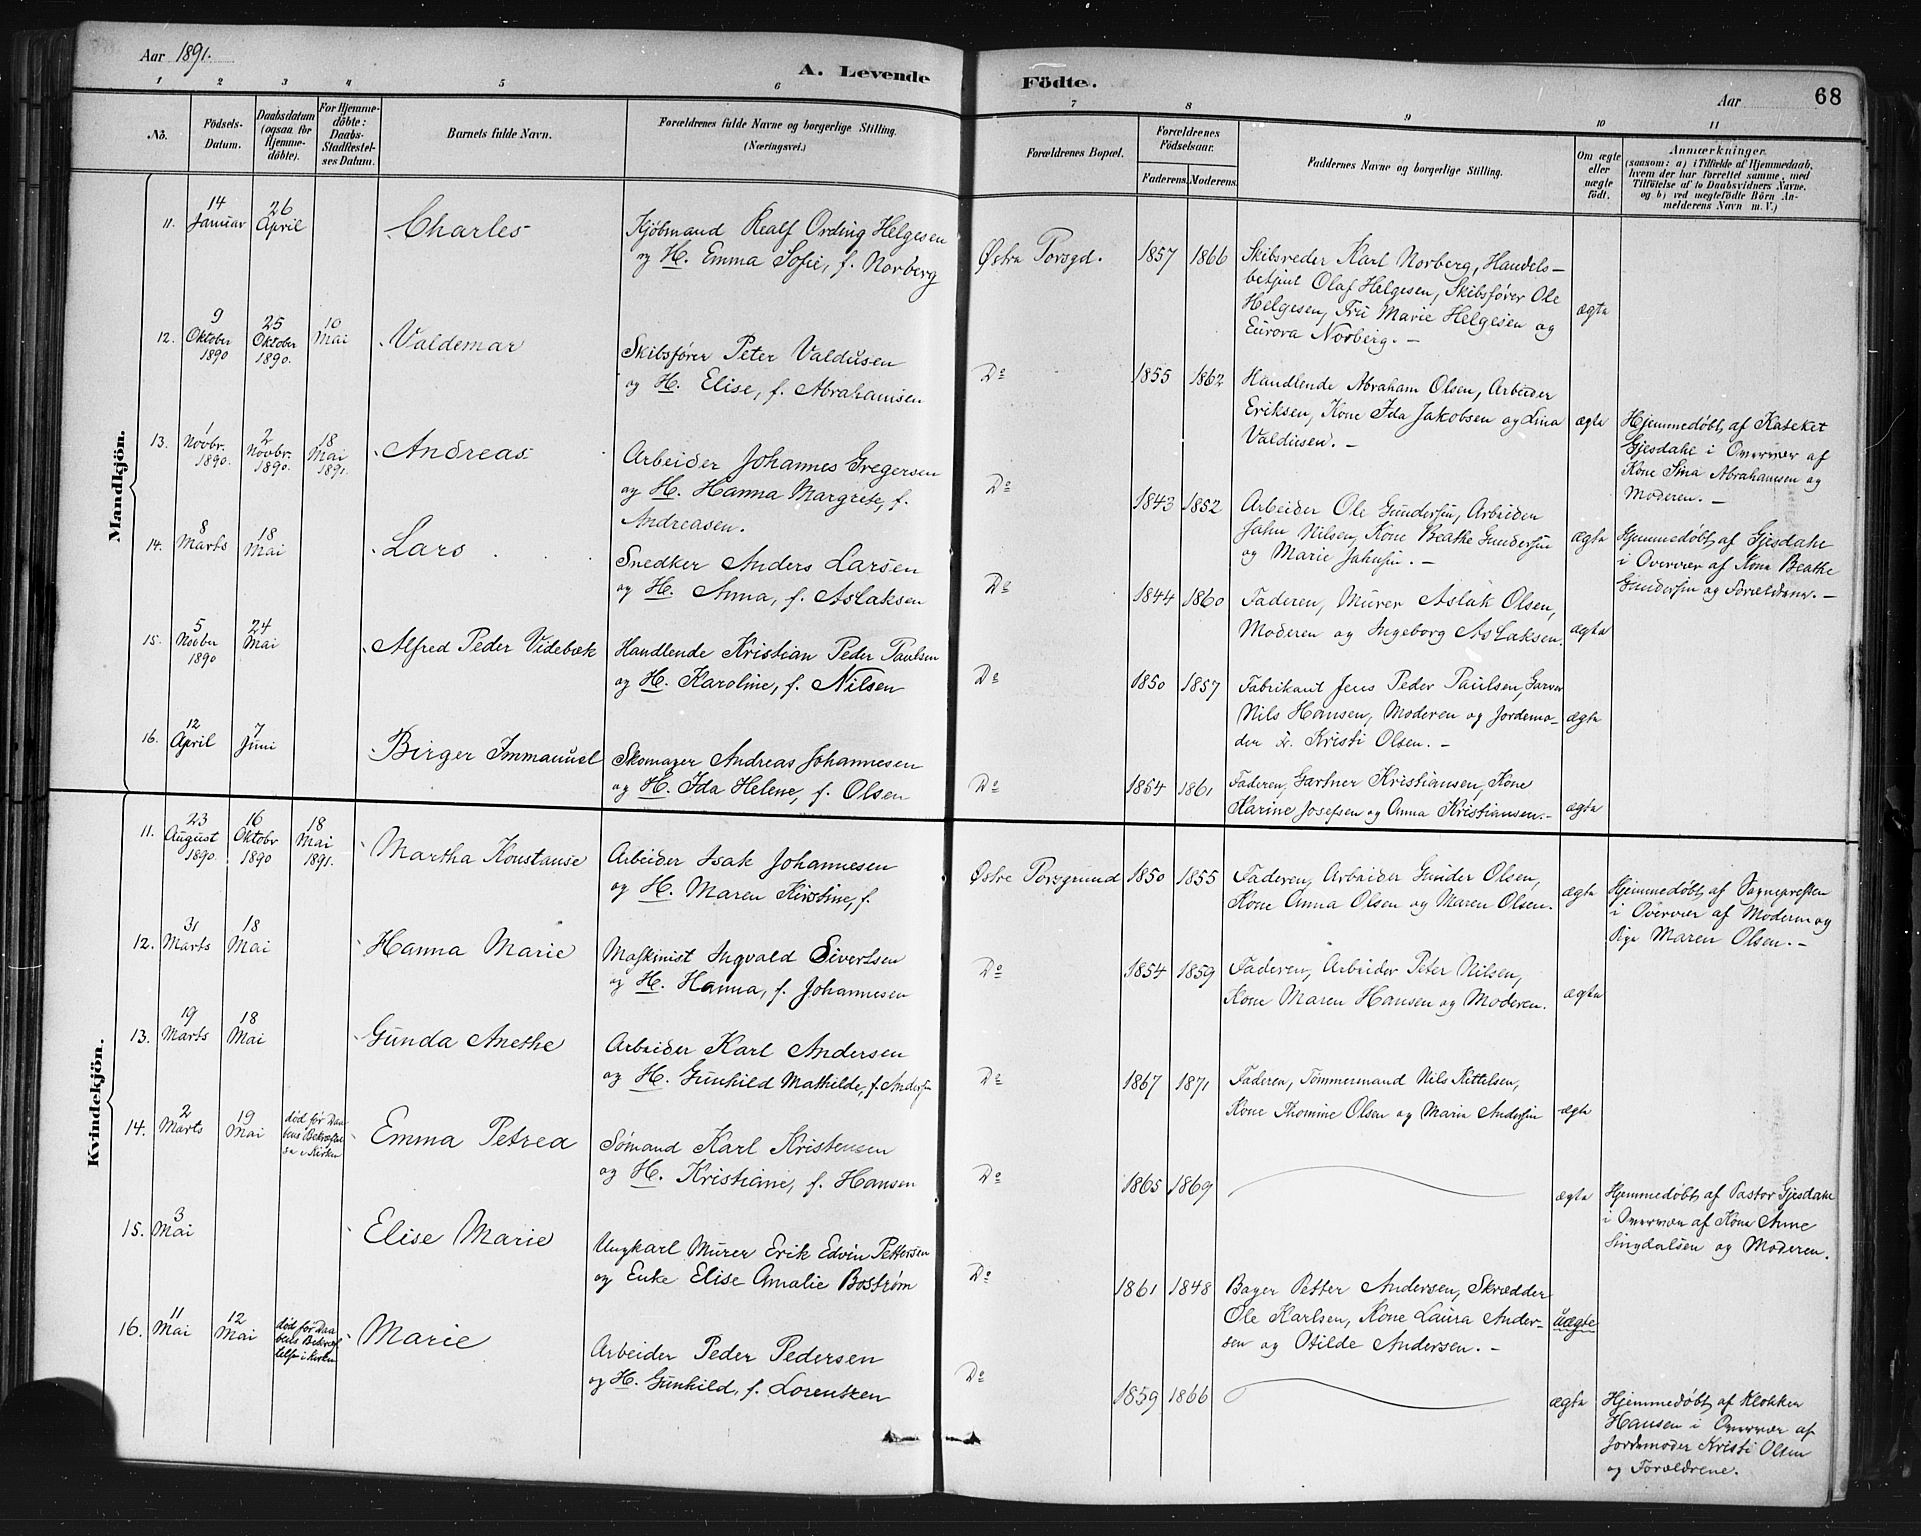 Aar 1891.
A. Levende Födte.
Aar 68
1 2 3 4 5 6 7 8 9 10 11
No.
Födsels-
Datum.
Daabsdatum
(ogsaa for
Hjemme-
döbte).
For Hjemme-
døbte:
Daabs-
Stadfæstel-
ses Datum.
Barnets fulde Navn.
Forældrenes fulde Navne og borgerlige Stilling.
(Næringsvei.)
Forældrenes Bopæl.
Forældrenes
Födselsaar.
Faderens. Moderens.
Faddernes Navne og borgerlige Stilling.
Om ægte
eller
uægte
födt.
Anmærkninger.
(saasom: a) i Tilfælde af Hjemmedaab,
hvem der har forrettet samme, med
Tilföielse af to Daabsvidners Navne,
og b) ved uegtefödte Börn An-
melderens Navn m. V.)
Mandkjön.
11. 14 Januar 26 April
Charles
Kjöbmand Realf Ording Helgesen
og H. Emma Sofie, f. Norberg
Østra Porsgd.
1857 1866
Skibsreder Karl Norberg, Handels-
betjent Olaf Helgesen, Skibsfører Ole
Helgesen, Fru Marie Helgesen og
Eurora Norberg. -
ægte
12. 9 Oktober 1890 25 Oktober 1890. 10 Mai
Valdemar
Skibsfører Peter Valdusen
og H. Elise, f. Abrahamsen
Do
1855 1862
Handlende Abraham Olsen, Arbeider
Eriksen, Kone Ida Jakobsen og Lina
Valdusen. -
ægte
Hjemmedøbt af Kateket
Gjesdahl i Overvær af
Kone Sina Abrahamsen og
Moderen. -
13. 1 Novbr. 1890. 2 Novbr. 1890. 18 Mai 1891.
Andreas
Arbeider Johannes Gregersen
og H. Hanna Margrete, f.
Andreasen.
Do
1843 1852
Arbeider Ole Gundersen, Arbeider
Jahn Nilsen, Kone Beathe Gundersen
og Marie Jahnsen. -
ægte
Hjemmedøbt af Gjesdahl
i Overvær af Kone Beathe
Gundersen og Forældrene. -
14. 8 Marts 18 Mai
Lars
Snedker Anders Larsen
og H. Anna, f. Aslaksen
Do
1844 1860
Faderen, Murer Aslak Olsen,
Moderen og Ingeborg Aslaksen.
ægte
15. 5 Novber 1890 24 Mai
Alfred Peder Videbæk
Handlende Kristian Peder Paulsen
og H. Karoline, f. Nilsen
Do
1850 1857
Fabrikant Jens Peder Paulsen, Garver
Nils Hansen, Moderen og Jordemo-
der Fr. Kristi Olsen. -
ægte
16. 12 April 7 Juni
Birger Immanuel
Skomager Andreas Johannesen
og H. Ida Helene, f. Olsen
Do
1854 1861
Faderen, Gartner Kristiansen, Kone
Karine Josefsen og Anna Kristiansen. -
ægte
Kvindekjön.
11. 23 August 1890. 16 Oktobr 1890 18 Mai 1891.
Martha Konstanse
Arbeider Isak Johannesen
og H. Maren Kirstine, f.
Østre Porsgrund
1850 1855
Faderen, Arbeider Gunder Olsen,
Kone Anna Olsen og Maren Olsen.
ægte
Hjemmedøbt af Sognepresten
i Overvær af Moderen og
Pige Maren Olsen. -
12. 31 Marts 18 Mai
Hanna Marie
Maskinist Ingvald Sivertsen
og H. Hanna, f. Johannesen
Do
1854 1859
Faderen, Arbeider Peter Nilsen,
Kone Maren Hansen og Moderen.
ægte
13. 19 Marts 18 Mai
Gunda Anethe
Arbeider Karl Andersen
og H. Gunhild Mathilde, f. Andersen
Do
1867 1871
Faderen, Tømmermand Nils Kittelsen,
Kone Thomine Olsen og Maria Andersen
ægte
14. 2 Marts 19 Mai død før Daa-
bens Bekræftel-
se i Kirken
Emma Petrea
Sømand Karl Kristensen
og H. Kristiane, f. Hansen
Do
1865 1869
ægte
Hjemmedøbt af Pastor Gjesdahl
i Overvær af Kone Anne
Singdalsen og Moderen.
15. 3 Mai
Elise Marie
Ungkarl Murer Erik Edvin Pettersen
og Enke Elise Amalie Bostrøm
Do
1861 1848
Bager Petter Andersen, Skrædder
Ole Karlsen, Kone Laura Ander-
sen og Otilde Andersen. -
uægte
16. 11 Mai 12 Mai død før Daa-
bens Bekræf-
telse i Kirken
Marie
Arbeider Peder Pedersen
og H. Gunhild, f. Lorentzen
Do
1859 1866
ægte
Hjemmedøbt af Klokker
Hansen i Overvær af
Jordemoder Kristi Olsen
og Forældrene.